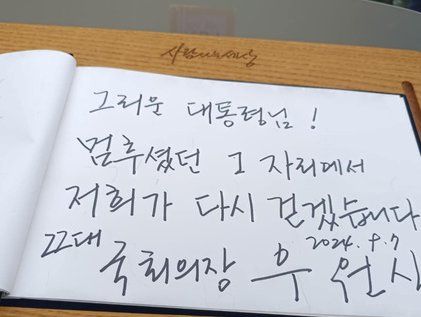 사람사는세상
그리운 대통령님!
멈추셨던 그 자리에서
저희가 다시 걷겠습니다
22대 2024. 9. 7
국회의장 우원식